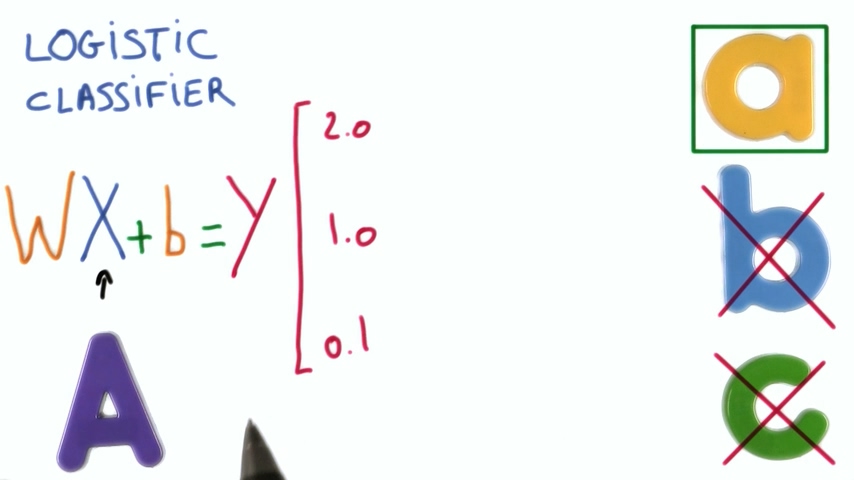 LOGISTIC
CLASSIFIER
WX+b=Y
2.0
1.0
0.1
A
a
b
c